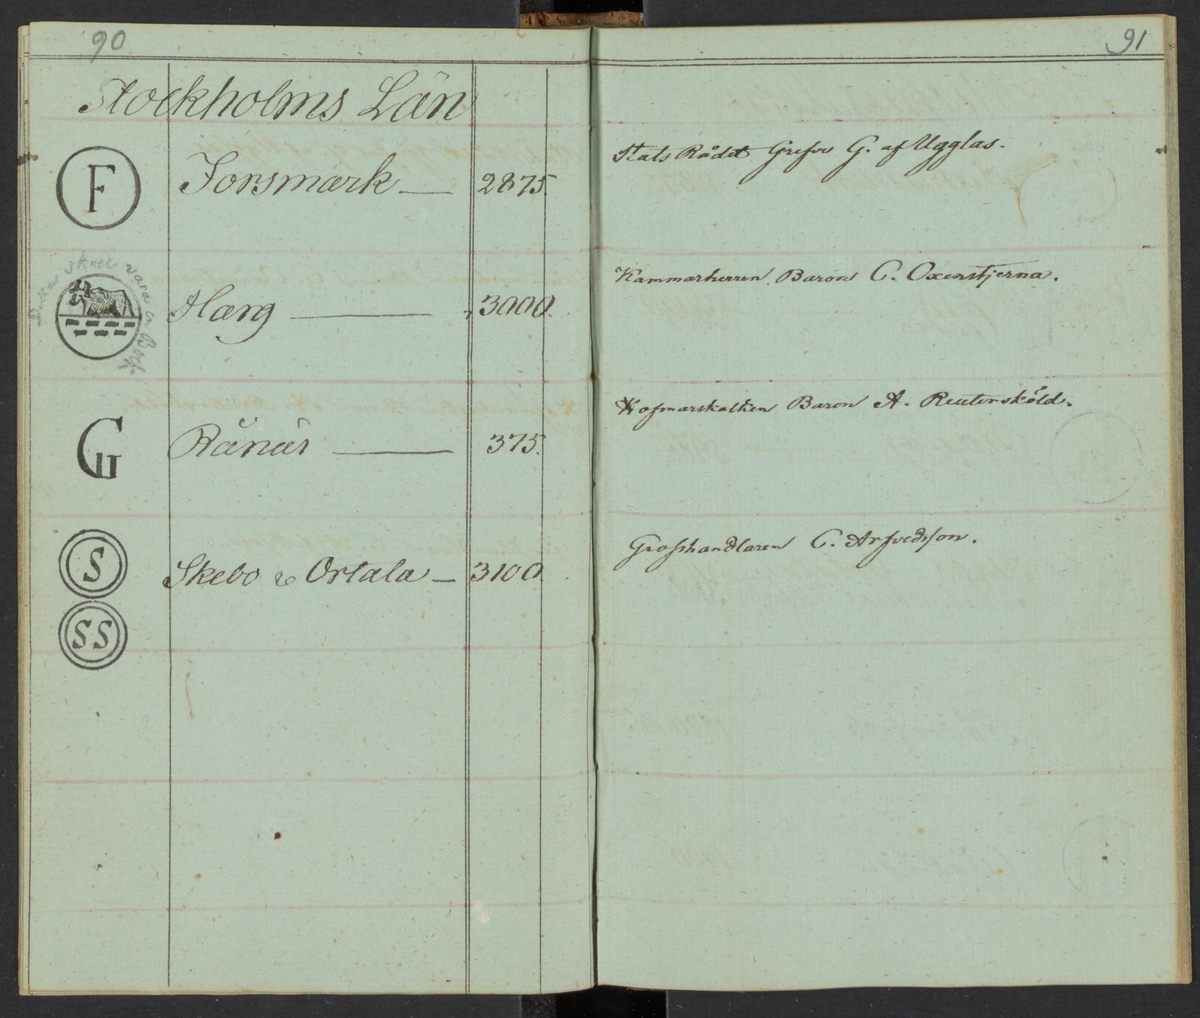 90
Stockholms Län
F
Forsmark — 2875
Detta skall vara en Bock
Harg — 3000.
G
Rånäs — 375.
S
Skebo & Ortala — 3100
SS
91
Stats Rådet Grefve G. af Ugglas.
Kammarherren Baron C. Oxenstjerna.
Hofmarskalken Baron A. Reutersköld.
Grosshandlaren C. Arfvedsson.